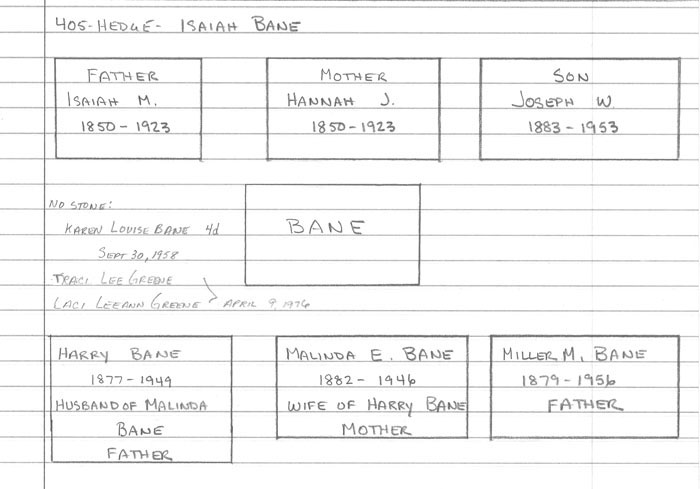 405-HEDGE- ISAIAH BANE
FATHER
ISAIAH M.
1850-1923
MOTHER
HANNAH J.
1850-1923
SON
JOSEPH W.
1883-1953
NO STONE:
KAREN LOUISE BANE 4d
SEPT 30, 1958
TRACI LEE GREENE
LACI LEEANN GREENE > APRIL 9, 1976
BANE
HARRY BANE
1877-1949
HUSBAND OF MALINDA
BANE
FATHER
MALINDA E. BANE
1882- 1946
WIFE OF HARRY BANE
MOTHER
MILLER M. BANE
1879-1956
FATHER